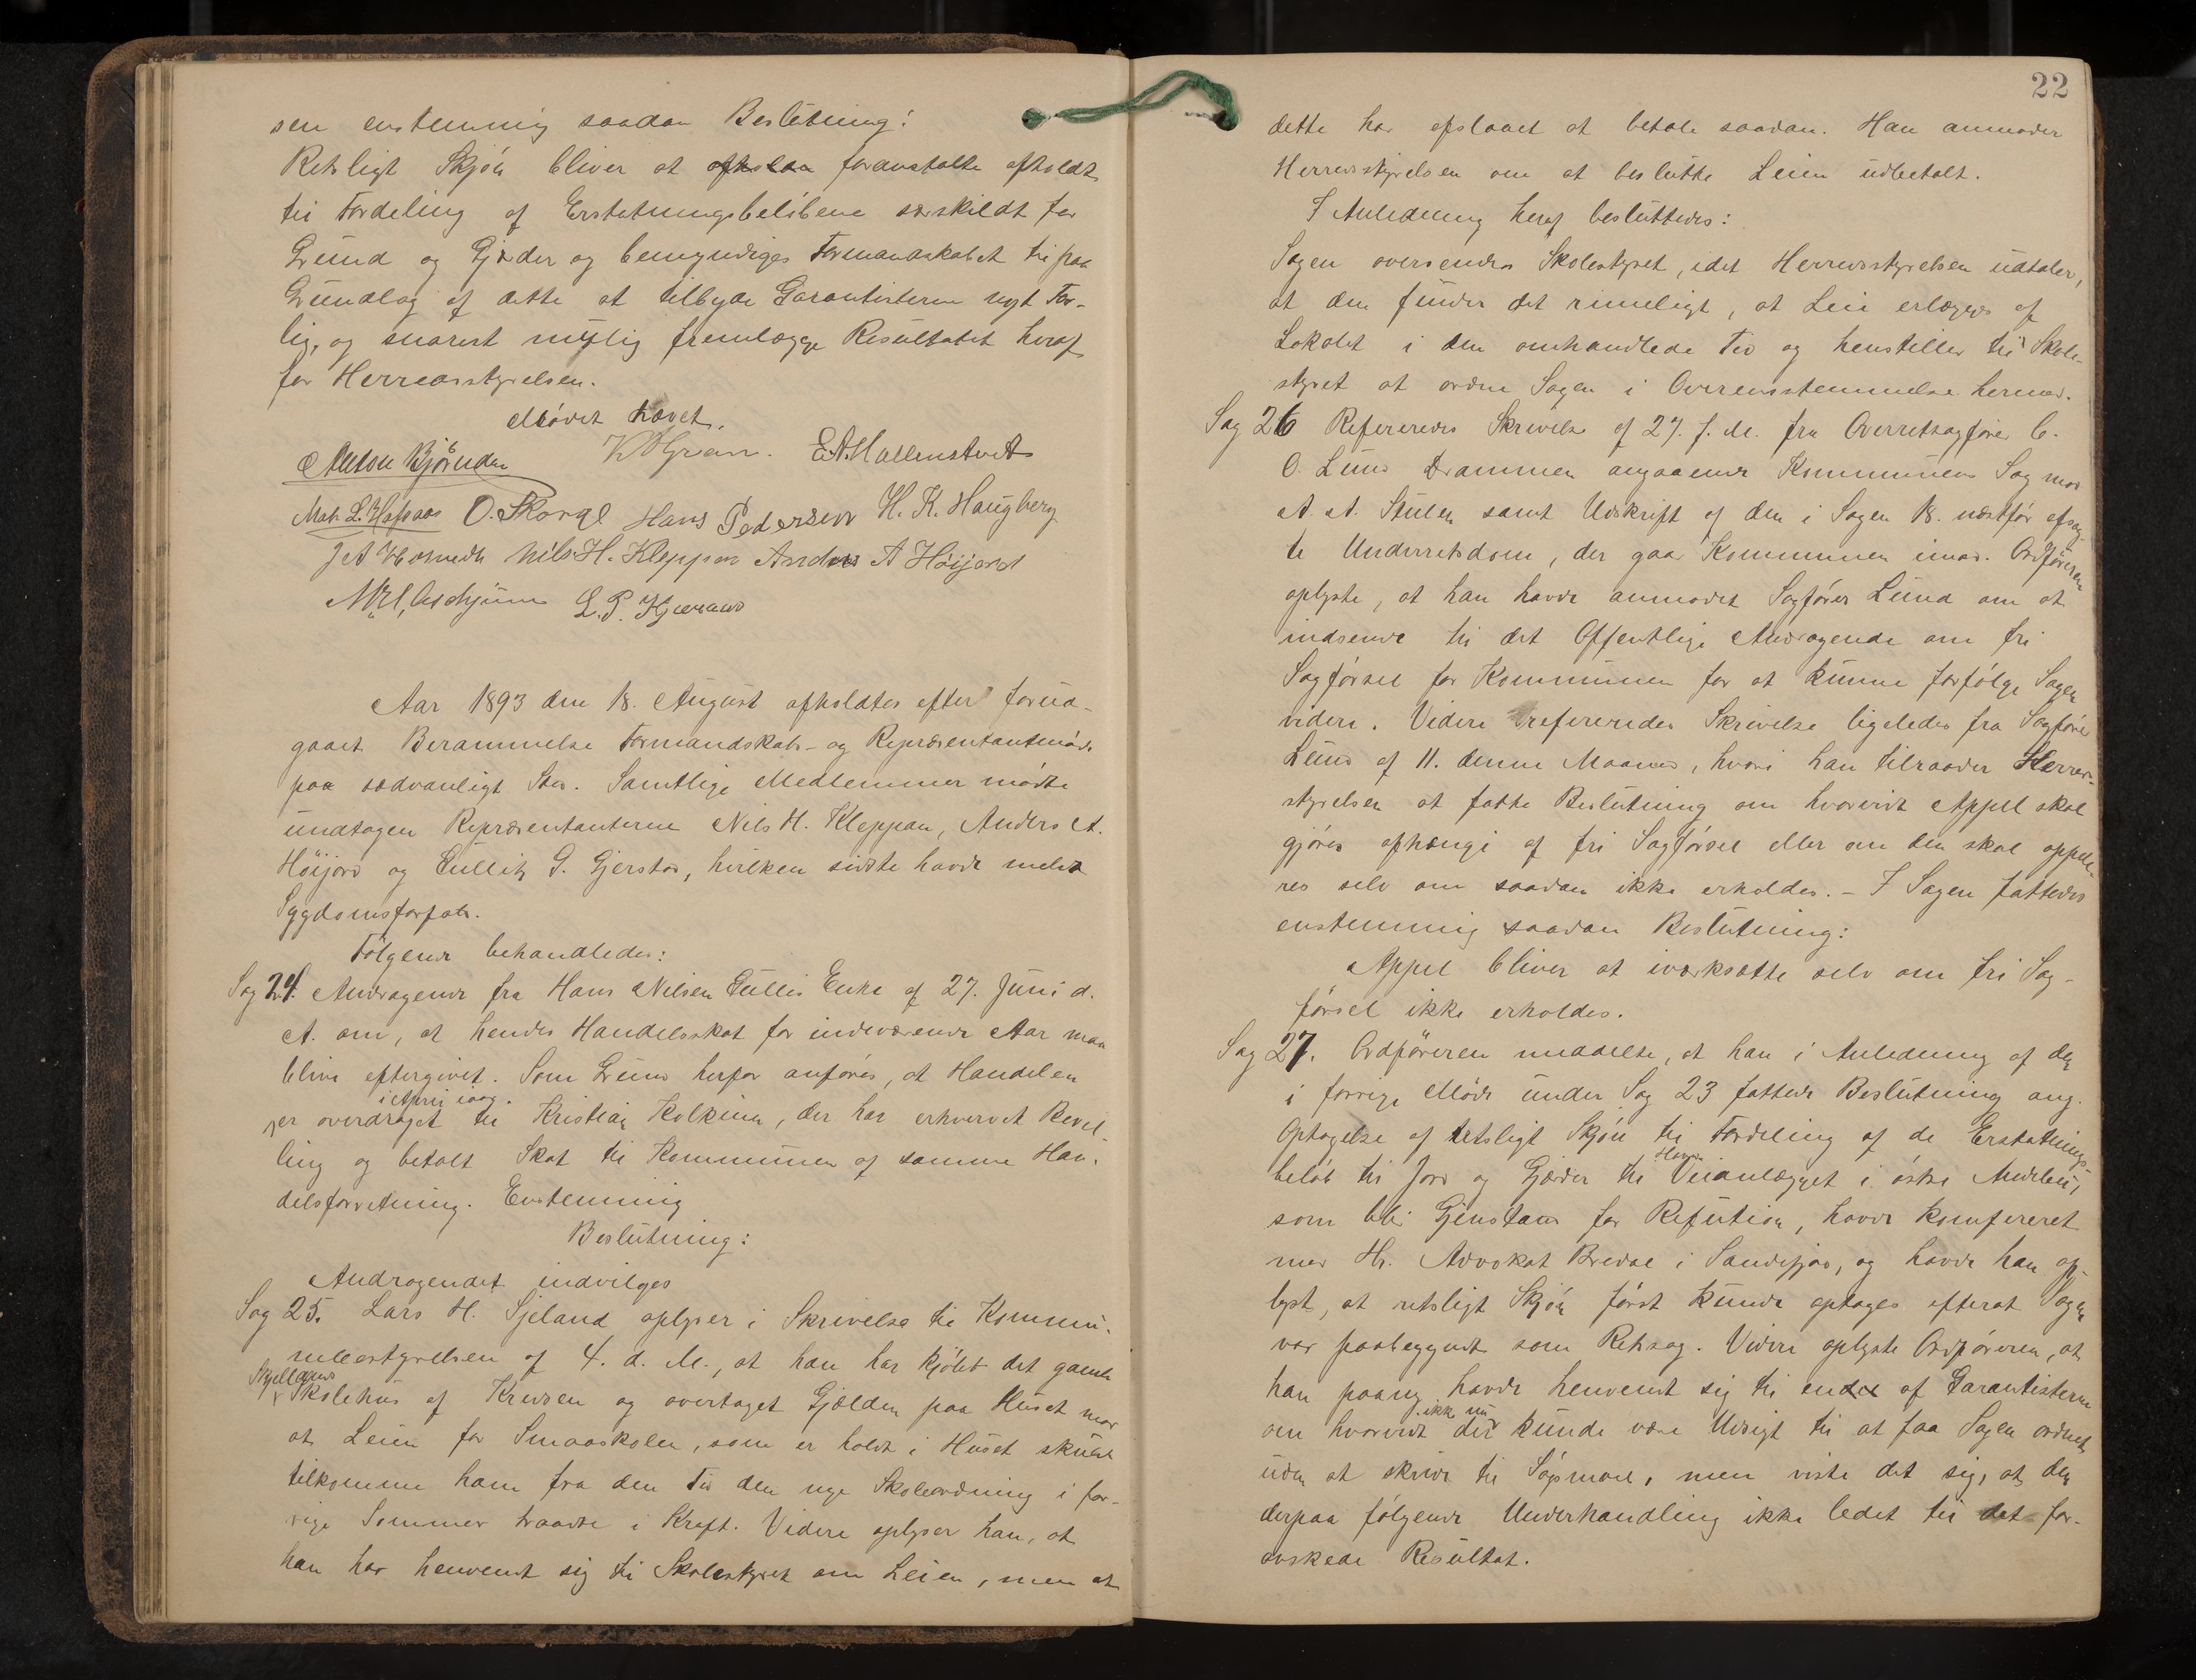 sen enstemmig saadan Beslutning:
Retsligt Skjön bliver at foranstalte afholdt
til Fordeling af Erstatningsbelöbene særskildt for
Grund og Gjærder og bemyndiges Formandskabet til paa
Grundlag af dette at tilbyde Garantisterne nyt For-
lig, og snarest mulig fremlægge Resultatet heraf
for Herredsstyrelsen.
Mödet hævet.
Anton Björndal K Gran. E A Hallenstvet
O. Skorge Hans Pedersen H. K. Haugberg
Nils H. Kleppan Anders A Höijord
L. P. Hjærand
Aar 1893 den 18. August afholdtes efter forud-
gaaet Berammelse Formandskabs- og Repræsentantmöde
paa sædvanligt Sted. Samtlige Medlemmer mödte
undtagen Repræsentanterne Nils H. Kleppan, Anders A.
Höijord og Gullik G. Gjerstad, hvilken sidste havde meldt
Sygdomsforfald.
Fölgende behandledes:
Sag 24. Andragende fra Hans Nilsen Gullis Enke af 27. Juni d.
A. om, at hendes Handelsskat for indeværende Aar maa
blive eftergivet. Som Grund herfor anföres, at Handelen
i April iaar.
er overdraget til Kristian Kolkinn, der har erhvervet Bevil-
ling og betalt Skat til Kommunen af samme Han-
delsforretning. Enstemmig
Beslutning:
Andragendet indvilges
Sag 25. Lars H. Sjeland oplyser i Skrivelse til Kommu-
nebestyrelsen af 4. d. M., at han har kjöbt det gamle
Skjellands
Skolehus af Kredsen og overtaget Gjælden paa Huset mod
at Leien for Smaaskolen, som er holdt i Huset skulde
tilkomme ham fra den Tid den nye Skoleordning i for-
rige Sommer traadte i Kraft. Videre oplyser han, at
han har henvendt sig til Skolestyret om Leien, men at
22
dette har afslaaet at betale saadan. Han anmoder
Herredsstyrelsen om at beslutte Leien udbetalt.
I Anledning heraf besluttedes:
Sagen oversendes Skolestyret, idet Herredsstyrelsen udtaler,
at den finder det rimeligt, at Leie erlægges af
Lokalet i den omhandlede Tid og henstiller til Skole-
styret at ordne Sagen i Overensstemmelse hermed.
Sag 26 Refereredes Skrivelse af 27. f. M. fra Overretsagförer C.
O. Lund Drammen angaaende Kommunens Sag mod
A. A. Stulen samt Udskrift af den i Sagen 18. næstför afsag-
te Underretsdom, der gaar Kommunen imod. Ordföreren
oplyste, at han havde anmodet Sagförer Lund om at
indsende til det Offentlige Andragende om fri
Sagförsel for Kommunen for at kunne forfölge Sagen
videre. Videre refereredes Skrivelse ligeledes fra Sagförer
Lund af 11. denne Maaned, hvori han tilraader Herreds-
styrelsen at fatte Beslutning om hvorvidt Appel skal
gjöres afhængi af fri Sagförsel eller om den skal appelle-
res selv om saadan ikke erholdes. – I Sagen fattedes
enstemmig saadan Beslutning:
Appel bliver at iværksætte selv om fri Sag-
försel ikke erholdes.
Sag 27. Ordföreren meddelte, at han i Anledning af den
i forrige Möde under Sag 23 fattede Beslutning ang.
Optagelse af retsligt Skjön til Fordeling af de Erstatnings-
belöb til Jord og Gjærder til Hoved Veianlægget i östre Andebu,
som blir Gjenstand for Refution, havde konfereret
med Hr. Advokat Bredal i Sandefjord, og havde han op-
lyst, at retsligt Skjön först kunde optages efterat Sagen
var paabegyndt som Retssag. Videre oplyste Ordföreren, at
han paany havde henvendt sig til endel af Garantisterne
ikke nu
om hvorvidt der kunde være Udsigt til at faa Sagen ordnet
uden at skride til Sögsmaal, men viste det sig, at den
derpaa fölgende Underhandling ikke ledet til det for-
önskede Resultat.